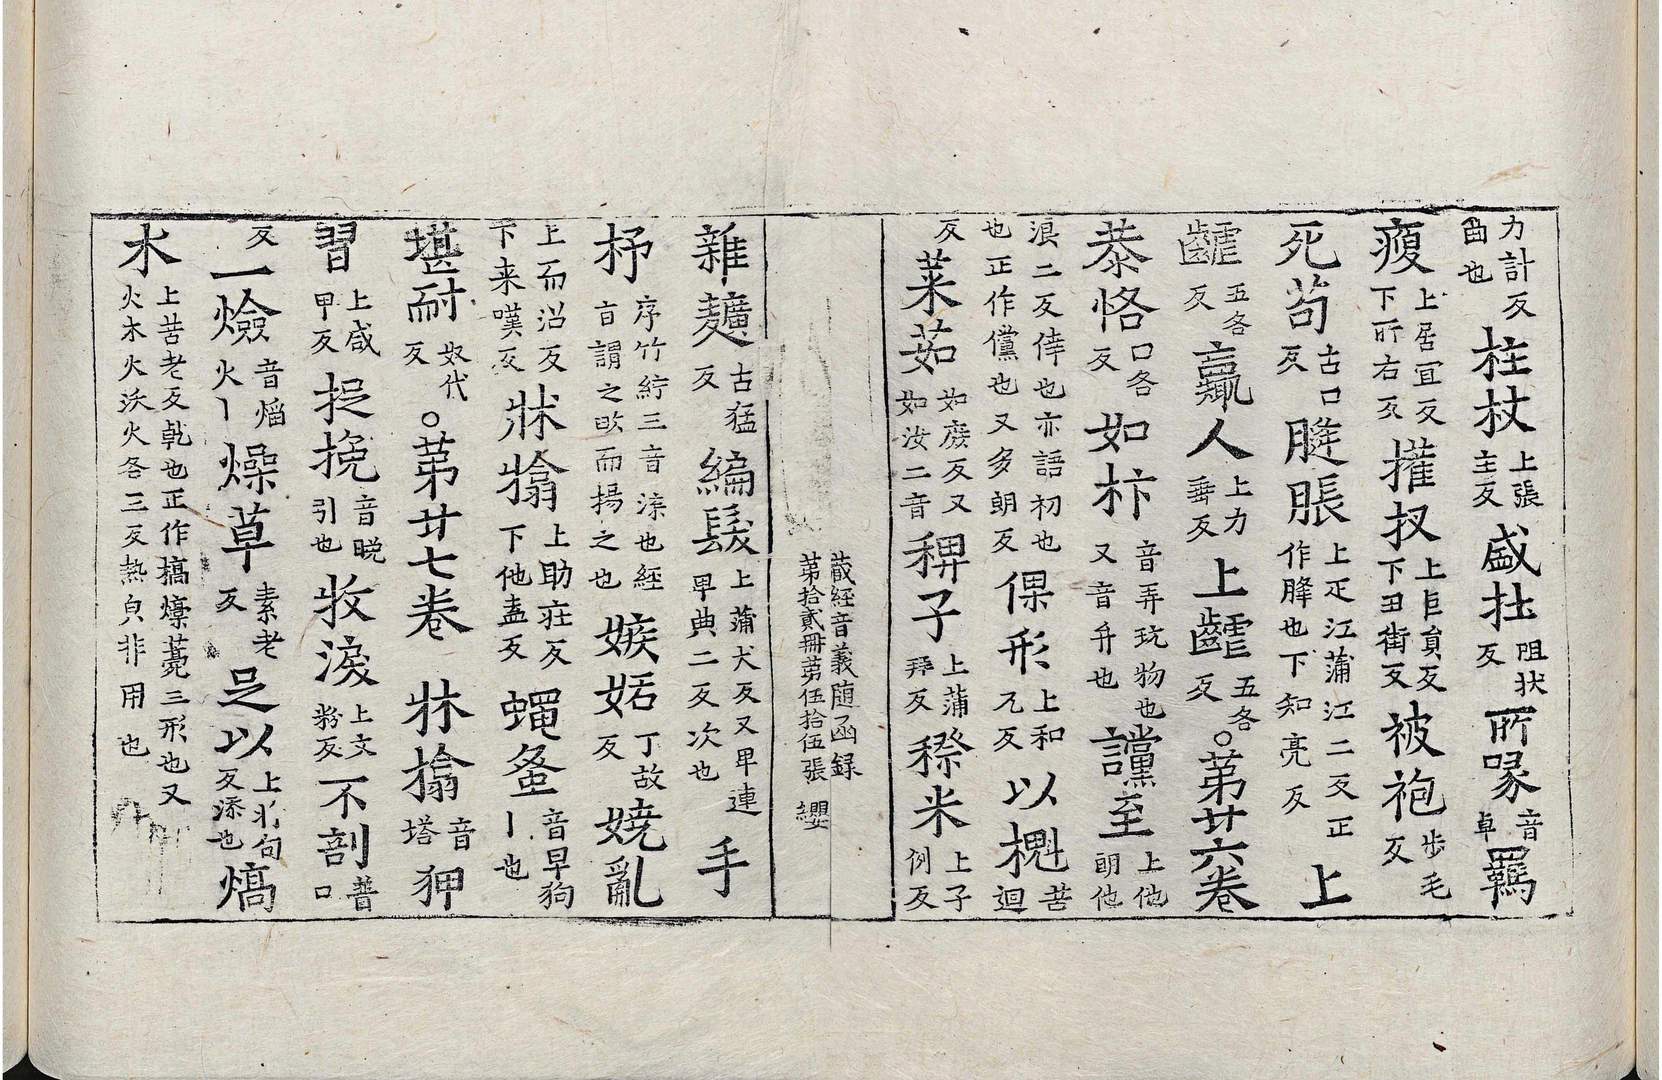 力計反鹵也柱杖上張主反盛拙阻状反所喙音卓羈
瘦上居宜反下所右反㩴扠上白負反下丑街反被袍步毛反
死苟古口反䏺脹上疋江蒲江二反正作胮也下知亮反上
齶五各反羸人上力垂反上齶五各反○第廿六卷
恭恪口各反如拤音弄玩物也又音弁也讜至上他朗他
浪二反倖也亦語初也也正作儻也又多朗反倮形上和瓦反以櫆苦迴
反菜茹如庶反又如汝二音稗子上蒲拜反穄米上子例反
藏經音義隨函録第拾貳冊第伍拾伍張 纓
雜䵃古猛反編髮上蒲犬反又卑連卑典二反次也手
抒序竹紵三音渁也經音謂之㰥而揚之也嫉妬丁故反嬈亂
上而沼反下来嘆反牀㩉上助莊反下他盍反蠅蚤音早狗丨也
堪耐奴代反○第廿七卷 牀㩉音塔狎
習上咸甲反捉挽音晚引也收淚上文粉反不剖普口
反一燄音焰火丨燥草素老反足以上爿句反添也熇
木上苦老反乹也正作槁燺薧三形也又火木火沃火各三反熱皃非用也